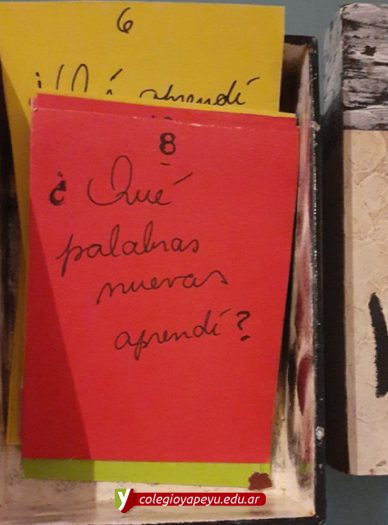 6
¿Qué aprendí
8
¿Qué
palabras
nuevas
aprendí?
colegioyapeyu.edu.ar